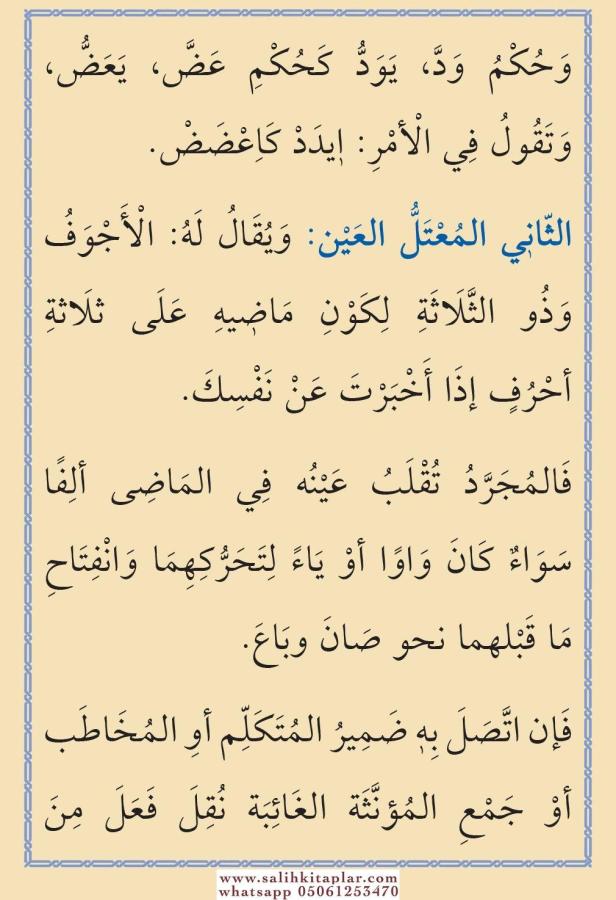 وَحُكْمُ وَدَّ، يَوَدُّ كَحُكْمِ عَضَّ، يَعَضُّ،
وَتَقُولُ فِي الْأمْرِ: اِٖيدَدْ كَاِعْضَضْ.
الثّانٖي المُعْتَلُّ العَيْن: وَيُقَالُ لَهُ: الْأَجْوَفُ
وَذُو الثَّلَاثَةِ لِكَوْنِ مَاضٖيهِ عَلَى ثلَاثةِ
أحْرُفٍ إذَا أَخْبَرْتَ عَنْ نَفْسِكَ.
فَالمُجَرَّدُ تُقْلَبُ عَيْنُه فِي المَاضِى ألِفًا
سَوَاءٌ كَانَ وَاوًا أوْ يَاءً لِتَحَرُّكِهِمَا وَانْفِتَاحِ
مَا قَبْلهما نحو صَانَ وبَاعَ.
فَإن اتَّصَلَ بِهٖ ضَمِيرُ المُتَكَلِّم أوِ المُخَاطَب
أوْ جَمْعِ المُؤنَّثَة الغَائِبَة نُقِلَ فَعَلَ مِنَ
www.salihkitaplar.com
whatsapp 05061253470